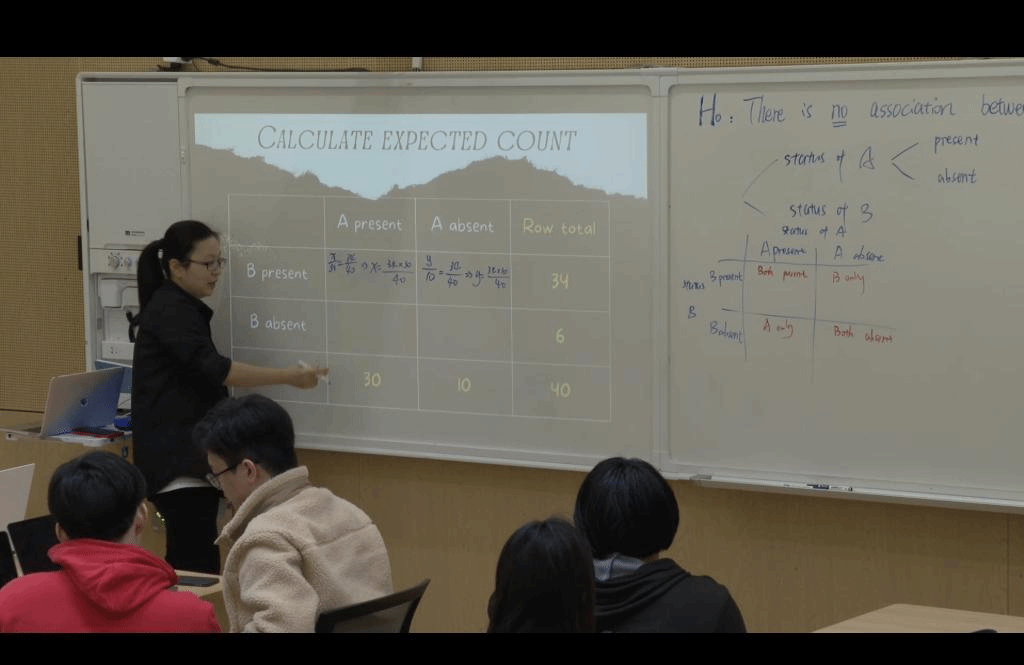 CALCULATE EXPECTED COUNT
A present A absent Row total
B present 34
B absent 6
30 10 40
H₀: There is no association betwe
status of A
present
absent
status of B
status of A
A present A absent
status B present Both B only
B
B absent A only Both absent